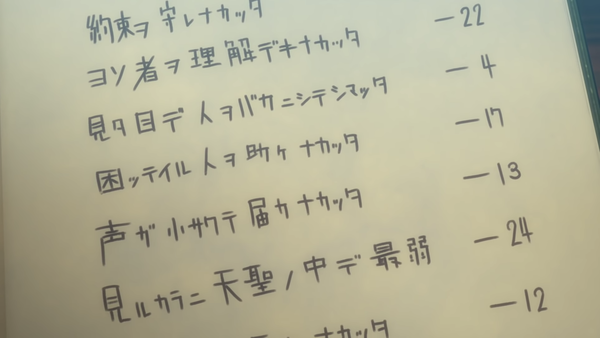 約束ヲ守レナカッタ —22
ヨソ者ヲ理解デキナカッタ —4
見タ目デ人ヲバカニシテシマッタ —17
困ッテイル人ヲ助ケナカッタ —13
声ガ小サクテ届カナカッタ —24
見ルカラニ天聖ノ中デ最弱 —12
ナカッタ